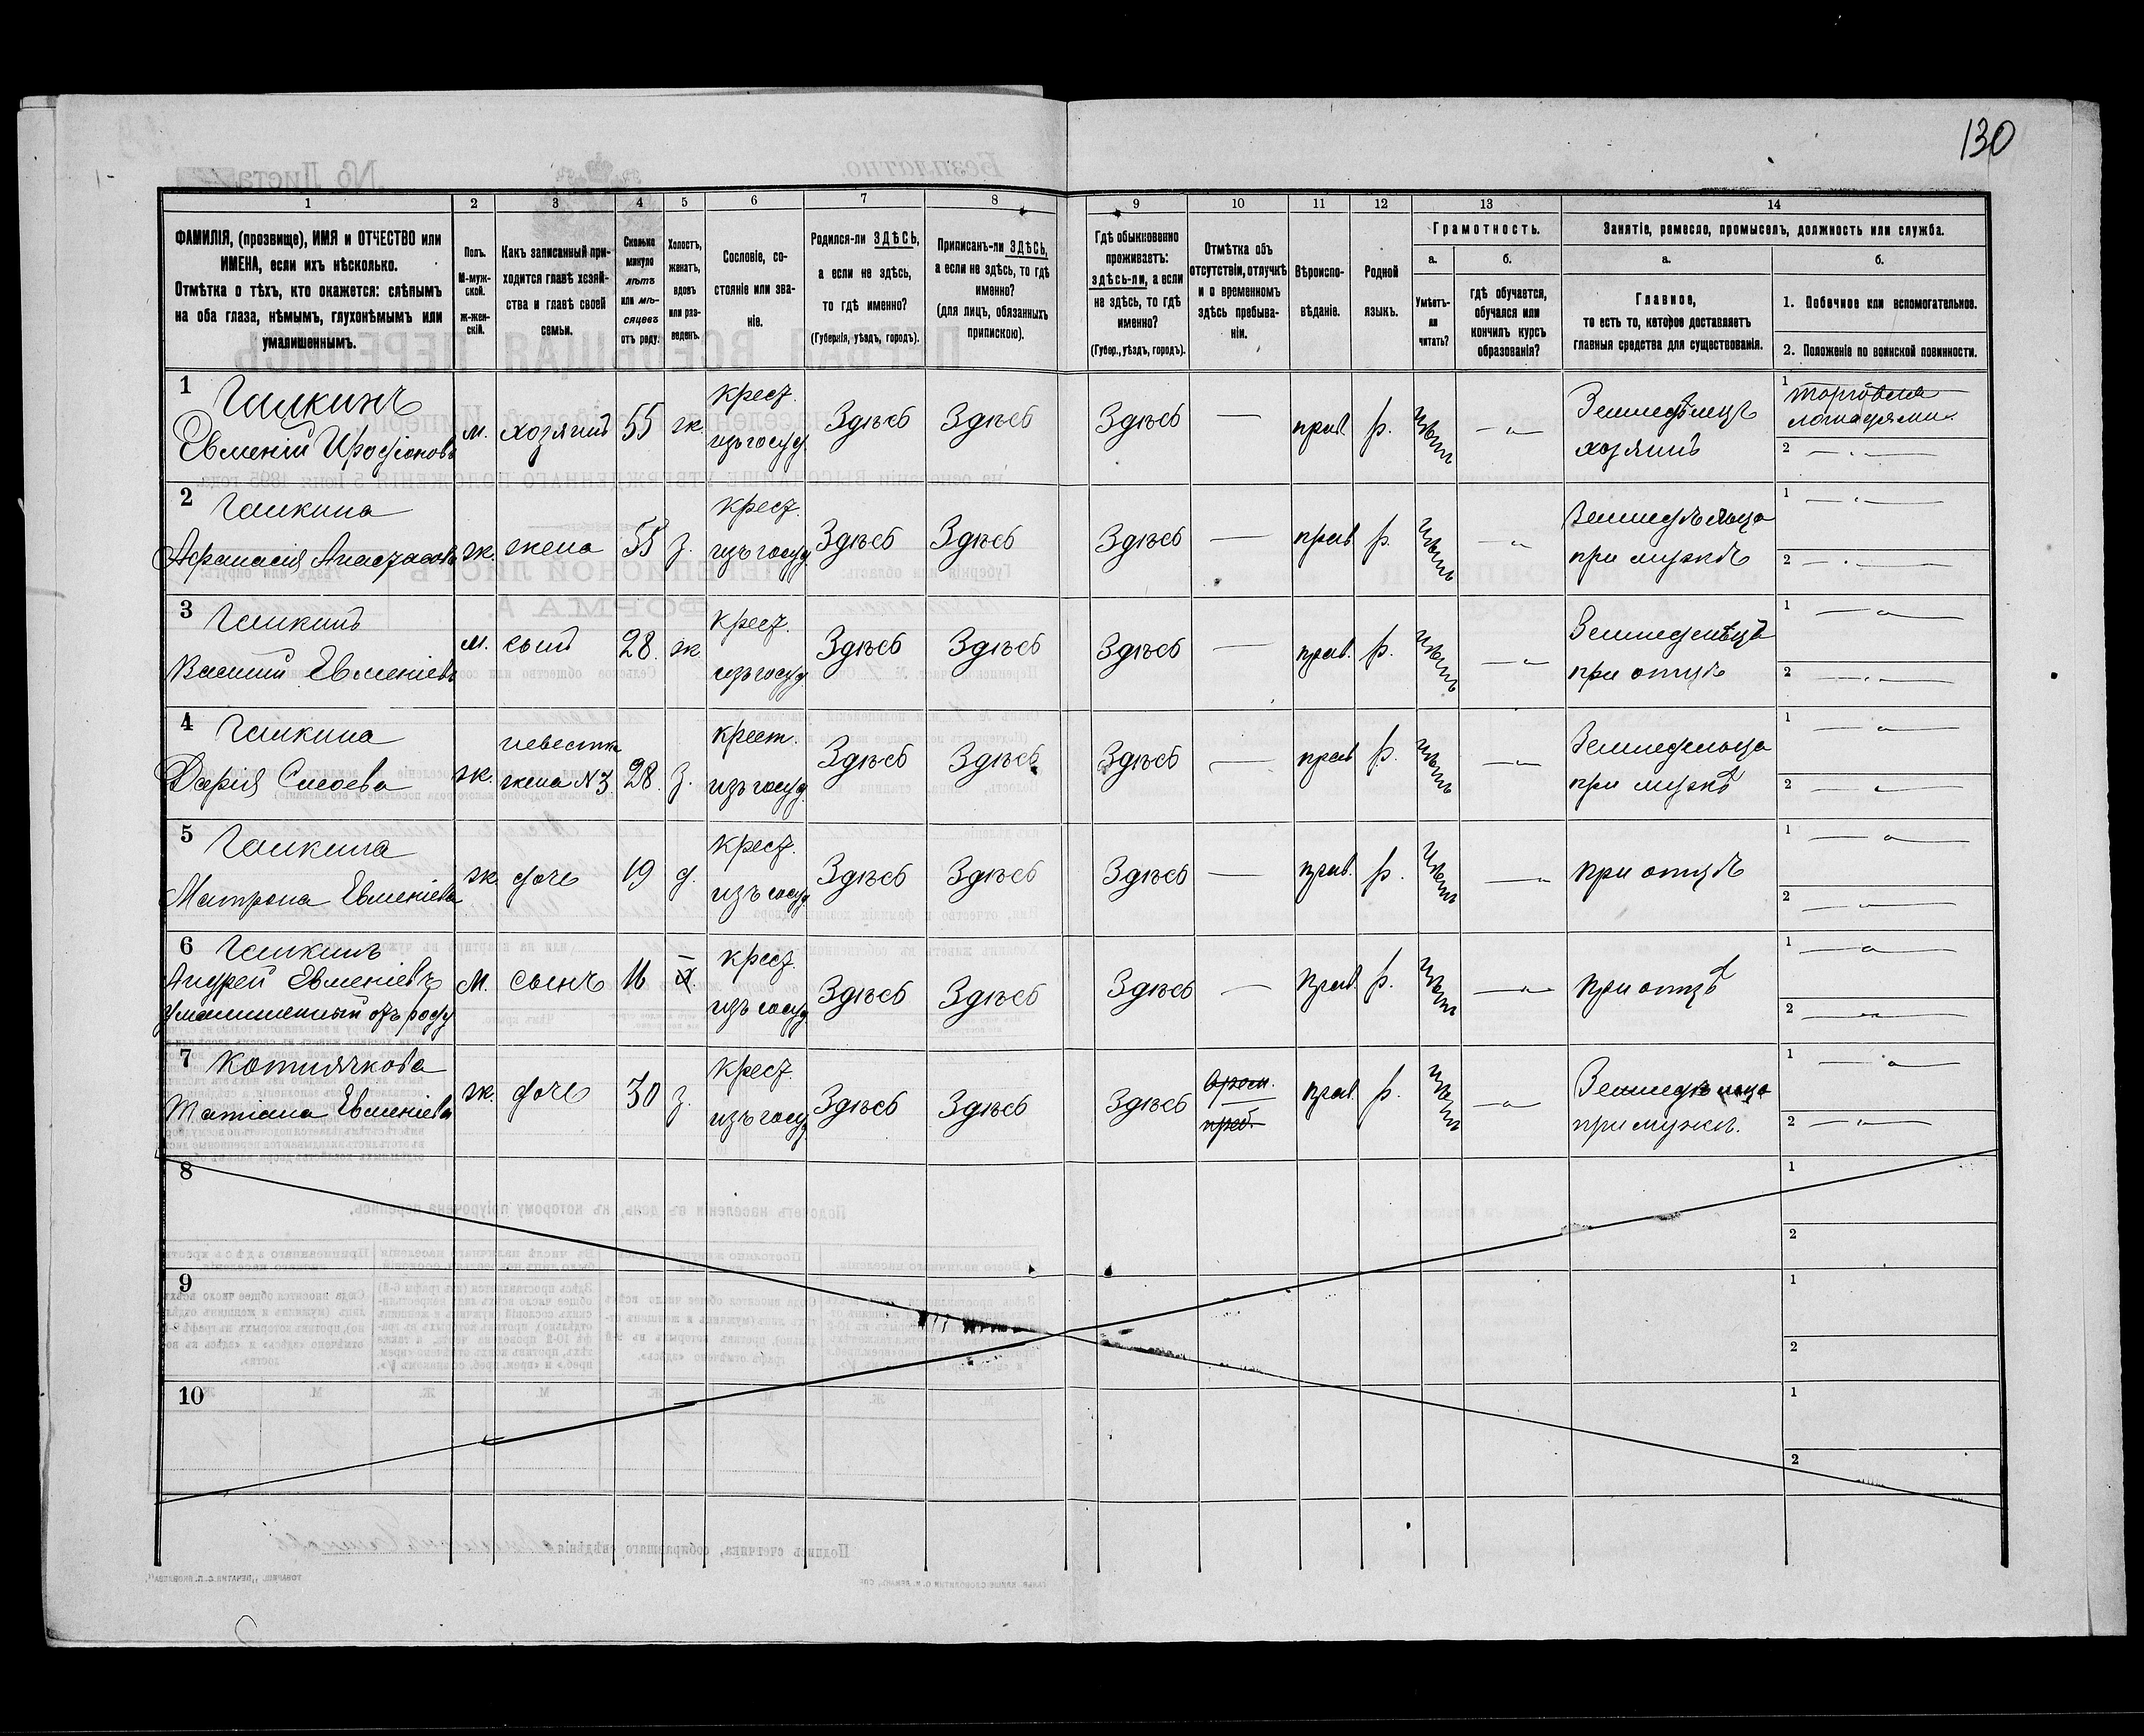 130
1 2 3 4 5 6 7 8 9 10 11 12 13 14
ФАМИЛІЯ, (прозвище), ИМЯ и ОТЧЕСТВО или ИМЕНА, если ихъ нѣсколько.
Отмѣтка о тѣхъ, кто окажется: слѣпымъ на оба глаза, нѣмымъ, глухонѣмымъ или умалишеннымъ.
Полъ. М-мужской. Ж-женскій.
Какъ записанный приходится главѣ хозяйства и главѣ своей семьи.
Сколько минуло лѣтъ или мѣсяцевъ отъ роду.
Холостъ, женатъ, вдовъ или разведенъ.
Сословіе, состояніе или званіе.
Родился-ли ЗДѢСЬ, а если не здѣсь, то гдѣ именно?
(Губернія, уѣздъ, городъ).
Приписанъ-ли ЗДѢСЬ, а если не здѣсь, то гдѣ именно?
(для лицъ, обязанныхъ припискою).
Гдѣ обыкновенно проживаетъ: здѣсь-ли, а если не здѣсь, то гдѣ именно?
(Губер., уѣздъ, городъ).
Отмѣтка объ отсутствіи, отлучкѣ и о временномъ здѣсь пребываніи.
Вѣроисповѣданіе.
Родной языкъ.
Грамотность.
а. Умѣетъ-ли читать?
б. гдѣ обучается, обучался или кончилъ курсъ образованія?
Занятіе, ремесло, промыселъ, должность или служба.
а. Главное, то есть то, которое доставляетъ главныя средства для существованія.
б.
1. Побочное или вспомогательное.
2. Положеніе по воинской повинности.
1 Галкинъ
Евменій Иродіоновъ м. хозяинъ 55 ж. крест. изъ госуд. Здѣсь Здѣсь Здѣсь — прав. р. нѣтъ — Земледѣлецъ хозяинъ 1 торговля лошадями 2 —
2 Галкина
Афанасія ж. жена 55 з. крест. изъ госуд. Здѣсь Здѣсь Здѣсь — прав. р. нѣтъ — Земледѣлица при мужѣ 1 — 2 —
3 Галкинъ
Василій Евменіевъ м. сынъ 28 ж. крест. изъ госуд. Здѣсь Здѣсь Здѣсь — прав. р. нѣтъ — Земледѣлецъ при отцѣ 1 — 2 —
4 Галкина
Дарія ж. невестка жена N 3 28. з. крест. изъ госуд. Здѣсь Здѣсь Здѣсь — прав. р. нѣтъ — Земледѣлица при мужѣ 1 — 2 —
5 Галкина
Матрона Евменіева ж. дочь 19 д. крест. изъ госуд. Здѣсь Здѣсь Здѣсь — прав. р. нѣтъ — при отцѣ 1 — 2 —
6 Галкинъ
Андрей Евменіевъ
Умалишенный отъ роду м. сынъ 16 х. крест. изъ госуд. Здѣсь Здѣсь Здѣсь — прав. р. нѣтъ — при отцѣ 1 — 2 —
7 Котлячкова
Татіана Евменіева ж. дочь 30 з. крест. изъ госуд. Здѣсь Здѣсь Здѣсь врем. преб. прав. р. нѣтъ — Земледѣлица при мужѣ. 1 — 2 —
8 1 2
9 1 2
10 1 2